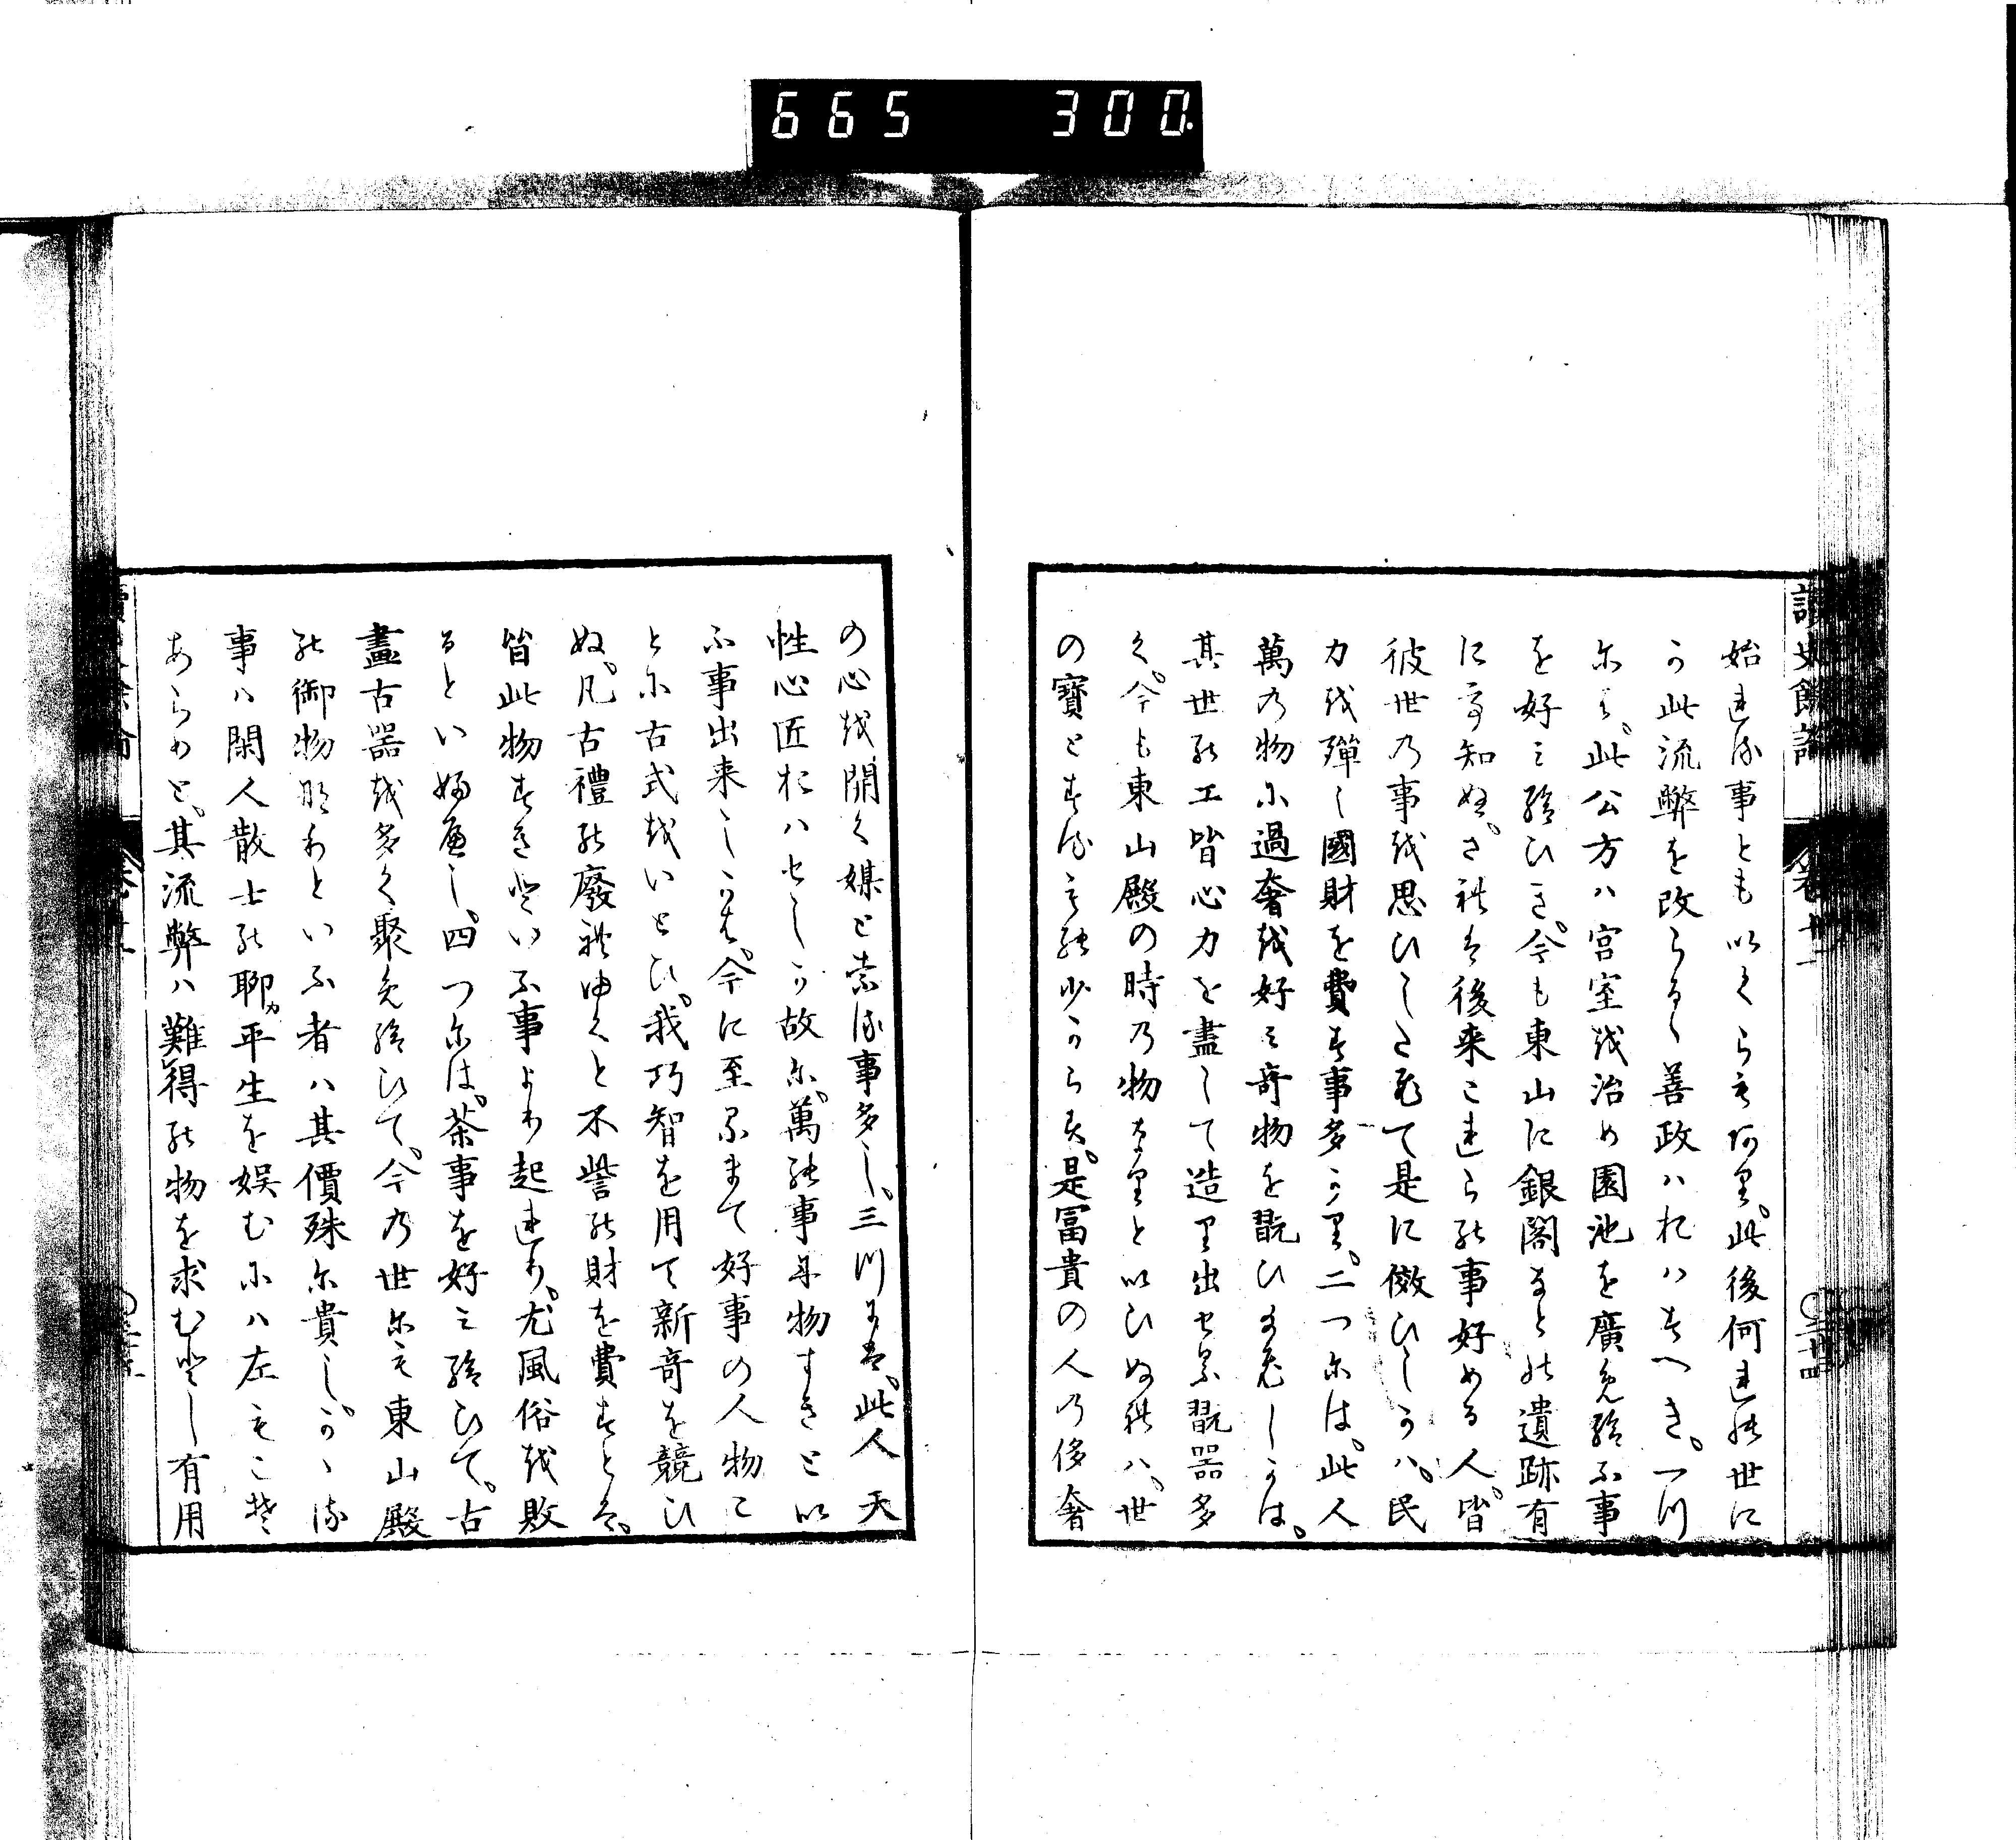 665 300.
始まる事ともいくらもあり。此後何れの世に
か此流弊を改らるゝ善政ハおハすへき。一つ
には、此公方ハ宮室を治め園池を廣め給ふ事
を好み給ひき。今も東山に銀閣なとの遺跡有
に
彼世の事を思ひしたひて是に倣ひしかハ。民
力を殫し國財を費す事多かり。二つには。此人
萬の物に過奢を好み奇物を翫ひ給ひしかは。
其世の工皆心力を盡して造り出せる翫器多
く。今も東山殿の時の物なりといひぬれハ。世
の寶とする も少からす。是冨貴の人の侈奢
の心を開く媒となる事多し。三つには。此人天
性心匠おハせしか故に。萬の事に物すきとい
ふ事出来しかは。今に至るまて好事の人物こ
とに古式をいとひ。我巧智を用て新奇を競ひ
ぬ。凡古禮の廢れゆくと不訾の財を費すとは。
皆此物すきといふ事より起れり。尤風俗を敗
るといふへし。四つには。茶事を好み給ひて。古
畫古器を多く聚め給ひて。今の世にも東山殿
の御物なりといふ者ハ其價殊に貴し。かゝる
事ハ閑人散士の聊カ平生を娯むにハ左もこそ
あらめと、其流弊ハ難得の物を求むとし有用